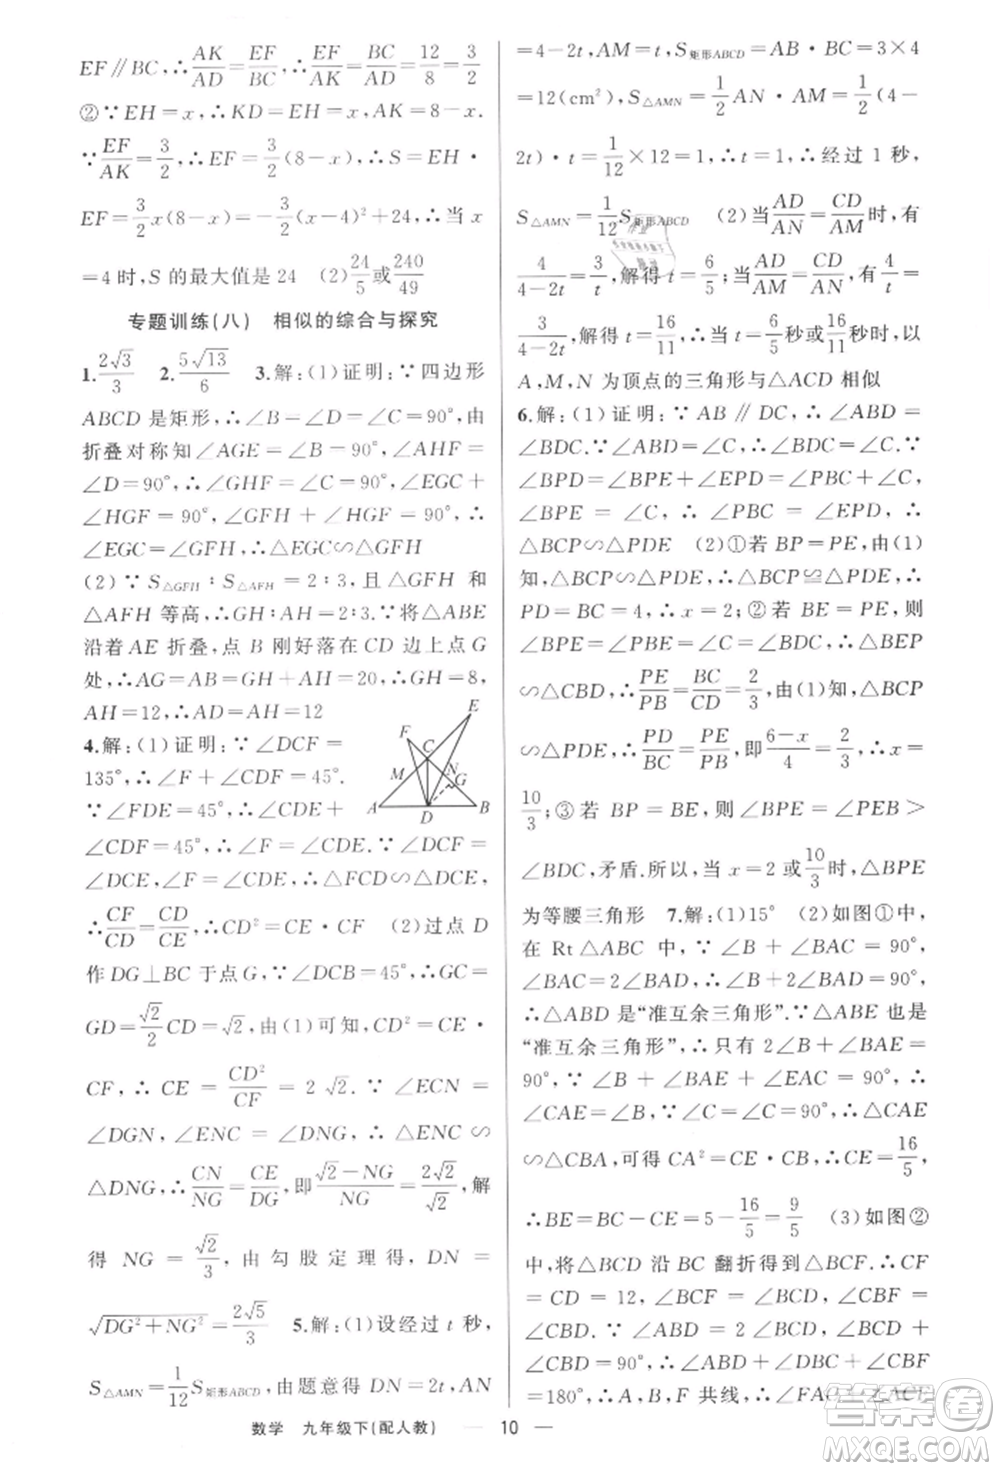 EF∥BC,∴AK/AD=EF/BC,∴EF/AK=BC/AD=12/8=3/2
②∵EH=x,∴KD=EH=x,AK=8-x.
∵EF/AK=3/2,∴EF=3/2(8-x),∴S=EH·
EF=3/2x(8-x)=-3/2(x-4)²+24,∴当 x
=4时,S 的最大值是 24 (2)24/5或240/49
专题训练(八) 相似的综合与探究
1.2√3/3 2.5√13/6 3.解:(1)证明:∵四边形
ABCD 是矩形,∴∠B=∠D=∠C=90°,由
折叠对称知∠AGE=∠B=90°,∠AHF=
∠D=90°,∴∠GHF=∠C=90°,∠EGC+
∠HGF=90°,∠GFH+∠HGF=90°,∴
∠EGC=∠GFH,∴△EGC∽△GFH
(2)∵S△GFH∶S△AFH=2∶3,且△GFH 和
△AFH 等高,∴GH∶AH=2∶3.∵将△ABE
沿着AE 折叠,点 B 刚好落在 CD 边上点 G
处,∴AG=AB=GH+AH=20,∴GH=8,
AH=12,∴AD=AH=12
4.解:(1)证明:∵∠DCF=
135°,∴∠F+∠CDF=45°.
∵∠FDE=45°,∴∠CDE+
∠CDF=45°,∴∠F=∠CDE.∵∠DCF=
∠DCE,∠F=∠CDE,∴△FCD∽△DCE,
∴CF/CD=CD/CE,∴CD²=CE·CF (2)过点 D
作 DG⊥BC 于点 G,∵∠DCB=45°,∴GC=
GD=√2/2CD=√2,由(1)可知,CD²=CE·
CF,∴CE=CD²/CF=2√2.∵∠ECN=
∠DGN,∠ENC=∠DNG,∴△ENC∽
△DNG,∴CN/NG=CE/DG,即√2-NG/NG=2√2/√2,解
得 NG=√2/3,由勾股定理得,DN=
√DG²+NG²=2√5/3 5.解:(1)设经过 t 秒,
S△AMN=1/12S矩形ABCD,由题意得 DN=2t,AN
E
F
C
M
N
G
A
D
B
=4-2t,AM=t,S矩形ABCD=AB·BC=3×4
=12(cm²),S△AMN=1/2AN·AM=1/2(4-
2t)·t=1/12×12=1,∴t=1,∴经过 1 秒,
S△AMN=1/12S矩形ABCD (2)当AD/AN=CD/AM时,有
4/4-2t=3/t,解得 t=6/5;当AD/AM=CD/AN,有4/t=
3/4-2t,解得 t=16/11,∴当 t=6/5秒或16/11秒时,以
A,M,N 为顶点的三角形与△ACD 相似
6.解:(1)证明:∵AB∥DC,∴∠ABD=
∠BDC.∵∠ABD=∠C,∴∠BDC=∠C.
∵∠BPD=∠BPE+∠EPD=∠C+∠CBP,
∠BPE=∠C,∴∠CBP=∠EPD,∴
△BCP∽△PDE (2)①若 BP=PE,由(1)
知,△BCP∽△PDE,∴△BCP≌△PDE,∴
PD=BC=4,∴x=2;②若 BE=PE,则
∠BPE=∠PBE=∠C=∠BDC,∴△BEP
∽△CBD,∴PE/PB=BC/CD=2/3,由(1)知,△BCP
∽△PDE,∴PD/BC=PE/PB,即6-x/4=2/3,∴x=
10/3;③若 BP=BE,则∠BPE=∠PEB>
∠BDC,矛盾.所以,当 x=2 或10/3时,△BPE
为等腰三角形 7.解:(1)15° (2)如图①中,
在 Rt△ABC 中,∵∠B+∠BAC=90°,
∠BAC=2∠BAD,∴∠B+2∠BAD=90°,
∴△ABD 是“准互余三角形”.∵△ABE 也是
“准互余三角形”,∴只有 2∠B+∠BAE=
90°.∵∠B+∠BAE+∠EAC=90°,∴
∠CAE=∠B.∵∠C=∠C=90°,∴△CAE
∽△CBA,可得 CA²=CE·CB,∴CE=16/5,
∴BE=BC-CE=5-16/5=9/5 (3)如图②
中,将△BCD 沿 BC 翻折得到△BCF.∴CF
=CD=12,∠BCF=∠BCD,∠CBF=
∠CBD.∵∠ABD=2∠BCD,∠BCD+
∠CBD=90°,∴∠ABD+∠CBD+∠CBF
=180°,∴A,B,F 共线,∴∠A+∠ACF=
数学 九年级下(配人教) — 10 —
答案圈
MXQE.COM